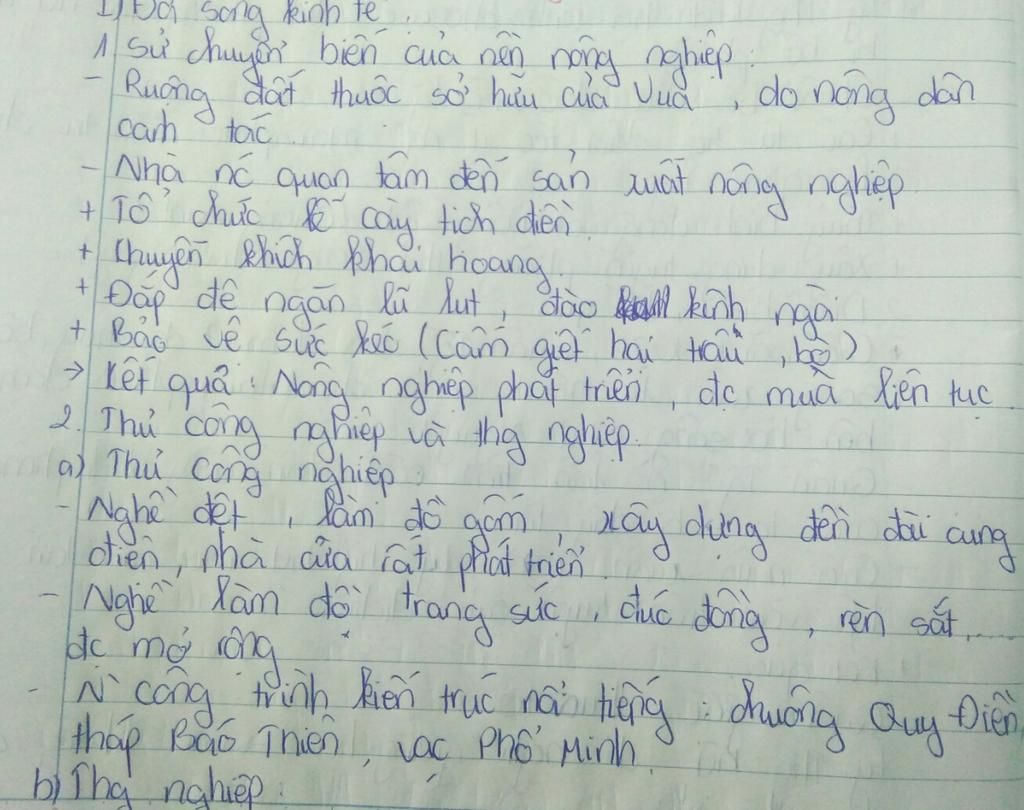 I) Đời sống kinh tế.
1. Sự chuyển biến của nền nông nghiệp.
- Ruộng đất thuộc sở hữu của Vua, do nông dân
canh tác.
- Nhà nc quan tâm đến sản xuất nông nghiệp.
+ Tổ chức lễ cày tịch điền.
+ Chuyến khích khai hoang.
+ Đắp đê ngăn lũ lụt, đào kinh ngòi
+ Bảo vệ sức kéo (Cấm giết hại trâu, bò)
→ Kết quả: Nông nghiệp phát triển, đc mùa liên tục.
2. Thủ công nghiệp và thg nghiệp.
a) Thủ công nghiệp:
- Nghề dệt, làm đồ gốm, xây dựng đền đài cung
điện, nhà cửa rất phát triển.
- Nghề làm đồ trang sức, đúc đồng, rèn sắt,...
đc mở rộng
- N` công trình kiến trúc nổi tiếng: chuông Quy Điền,
tháp Báo Thiên, vạc Phổ Minh.
b) Thg nghiệp: